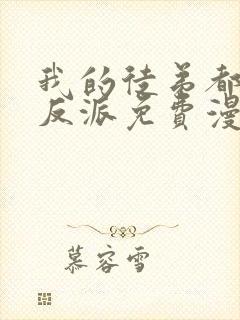 我的徒弟都
反派免費漫
慕容雪